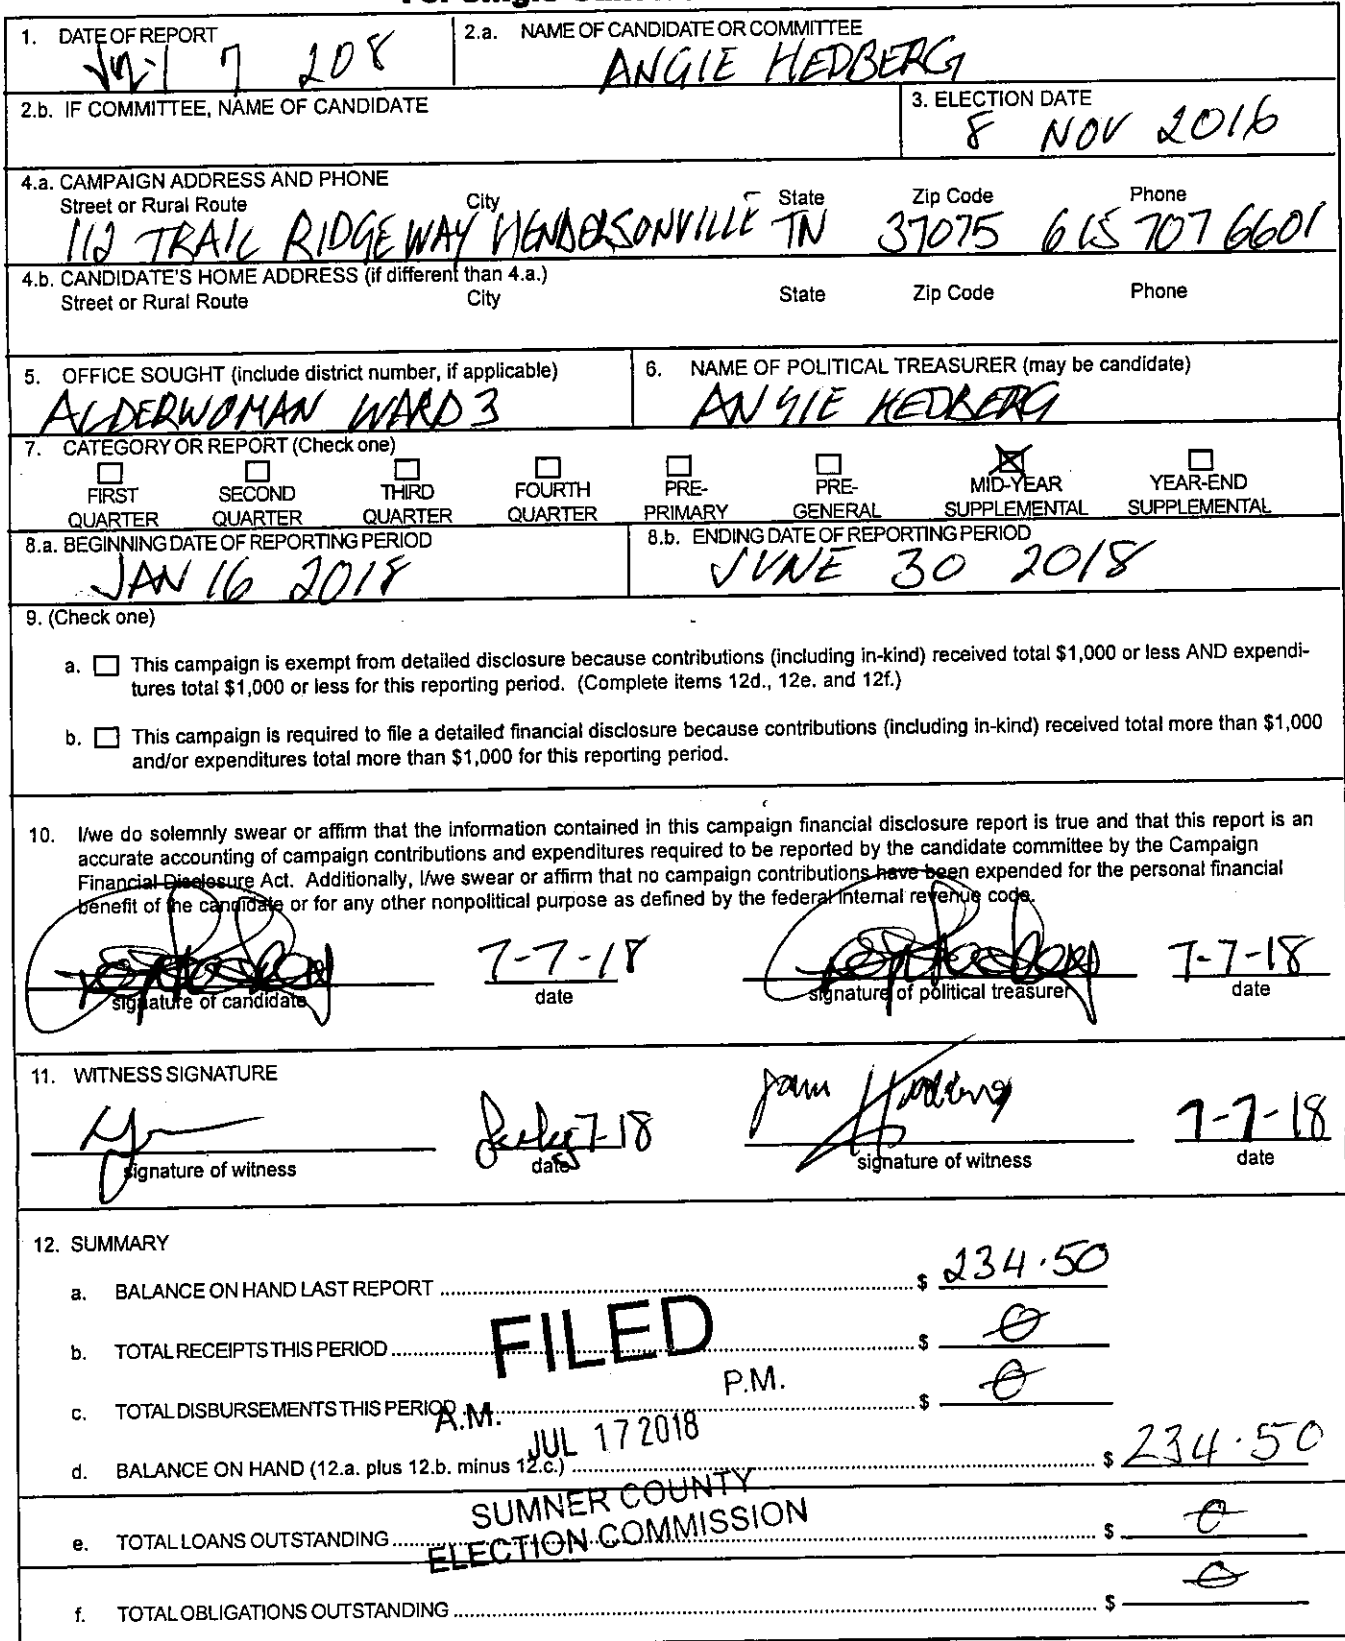 1. DATE OF REPORT
7 208
2.a. NAME OF CANDIDATE OR COMMITTEE
ANGIE HEDBERG
2.b. IF COMMITTEE, NAME OF CANDIDATE
3. ELECTION DATE
8 NOV 2016
4.a. CAMPAIGN ADDRESS AND PHONE
Street or Rural Route City State Zip Code Phone
112 TRAIL RIDGE WAY HENDERSONVILLE TN 37075 615 707 6601
4.b. CANDIDATE'S HOME ADDRESS (if different than 4.a.)
Street or Rural Route City State Zip Code Phone
5. OFFICE SOUGHT (include district number, if applicable)
ALDERWOMAN WARD 3
6. NAME OF POLITICAL TREASURER (may be candidate)
ANGIE HEDBERG
7. CATEGORY OR REPORT (Check one)
FIRST SECOND THIRD FOURTH PRE- PRE- MID-YEAR YEAR-END
QUARTER QUARTER QUARTER QUARTER PRIMARY GENERAL SUPPLEMENTAL SUPPLEMENTAL
8.a. BEGINNING DATE OF REPORTING PERIOD
JAN 16 2018
8.b. ENDING DATE OF REPORTING PERIOD
JUNE 30 2018
9. (Check one)
a. This campaign is exempt from detailed disclosure because contributions (including in-kind) received total $1,000 or less AND expendi-
tures total $1,000 or less for this reporting period. (Complete items 12d., 12e. and 12f.)
b. This campaign is required to file a detailed financial disclosure because contributions (including in-kind) received total more than $1,000
and/or expenditures total more than $1,000 for this reporting period.
10. I/we do solemnly swear or affirm that the information contained in this campaign financial disclosure report is true and that this report is an
accurate accounting of campaign contributions and expenditures required to be reported by the candidate committee by the Campaign
Financial Disclosure Act. Additionally, I/we swear or affirm that no campaign contributions have been expended for the personal financial
benefit of the candidate or for any other nonpolitical purpose as defined by the federal internal revenue code.
7-7-18 7-7-18
signature of candidate date signature of political treasurer date
11. WITNESS SIGNATURE
7-18 7-7-18
signature of witness date signature of witness date
12. SUMMARY
a. BALANCE ON HAND LAST REPORT $ 234.50
b. TOTAL RECEIPTS THIS PERIOD $ 0
FILED
c. TOTAL DISBURSEMENTS THIS PERIOD $ 0
A.M. P.M.
JUL 17 2018
d. BALANCE ON HAND (12.a. plus 12.b. minus 12.c.) $ 234.50
SUMNER COUNTY
ELECTION COMMISSION
e. TOTAL LOANS OUTSTANDING $ 0
f. TOTAL OBLIGATIONS OUTSTANDING $ 0